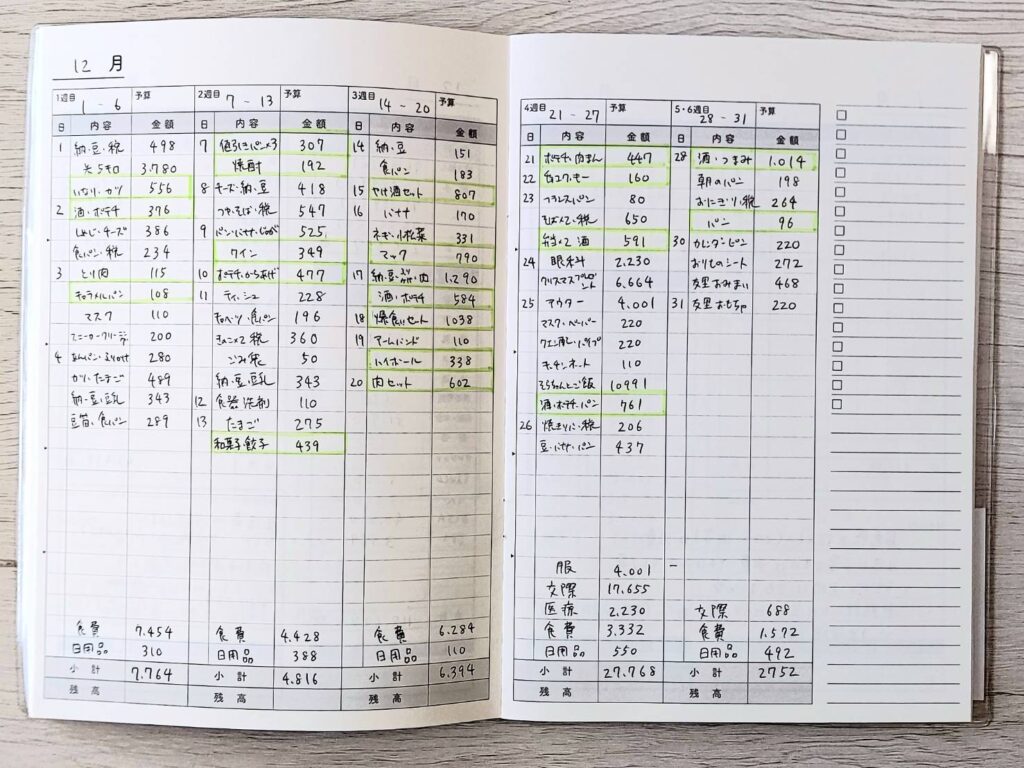 12 月
1週目 1 - 6 予算
日 内容 金額
1 納・豆・税 498
米5キロ 3.780
いなり・カツ 556
2 酒・ポテチ 376
しめじ・チーズ 386
食パン・税 234
3 とり肉 115
キャラメルパン 108
マスク 110
200
4 あんパン・ふりかけ 280
カツ・たまご 489
納・豆・豆乳 343
豆苗・食パン 289
食費 7.454
日用品 310
小計 7.764
残高
2週目 7 - 13 予算
日 内容 金額
7 値引きパン×3 307
焼酎 192
8 チーズ・納・豆 418
つき・そば・税 547
9 パン・バナナ・じゃが 525
ワイン 349
10 ポテチ・からあげ 477
11 ティッシュ 228
キャベツ・食パン 196
360
ごみ袋 50
納・豆・豆乳 343
12 食器洗剤 110
13 たまご 275
和菓子・餃子 439
食費 4.428
日用品 388
小計 4.816
残高
3週目 14 - 20 予算
日 内容 金額
14 納・豆 151
食パン 183
15 やけ酒セット 807
16 バナナ 170
ネギ・小松菜 331
マック 790
17 納・豆・肉 1.290
酒・ポテチ 584
18 爆食いセット 1038
19 アームバンド 110
ハイボール 338
20 肉セット 602
食費 6.284
日用品 110
小計 6.394
残高
4週目 21 - 27 予算
日 内容 金額
21 ポテチ・肉まん 447
22 160
23 フランスパン 80
そば×2・税 650
弁当×2 酒 591
24 眼科 2.230
クリスマスプレゼント 6.664
25 アウター 4.001
マスク・ペーパー 220
クエン酸・パイプ 220
キッチンネット 110
そらちゃんとご飯 10991
酒・ポテチ・パン 761
26 焼きそば・税 206
豆・バナナ・パン 437
服 4.001
交際 17.655
医療 2.230
食費 3.332
日用品 550
小計 27.768
残高
5・6週目 28 - 31 予算
日 内容 金額
28 酒・つまみ 1.014
朝のパン 198
おにぎり・税 264
パン 96
30 カレンダー・ピン 220
おりものシート 272
友里おみまい 468
31 友里おもちゃ 220
交際 688
食費 1.572
日用品 492
小計 2752
残高